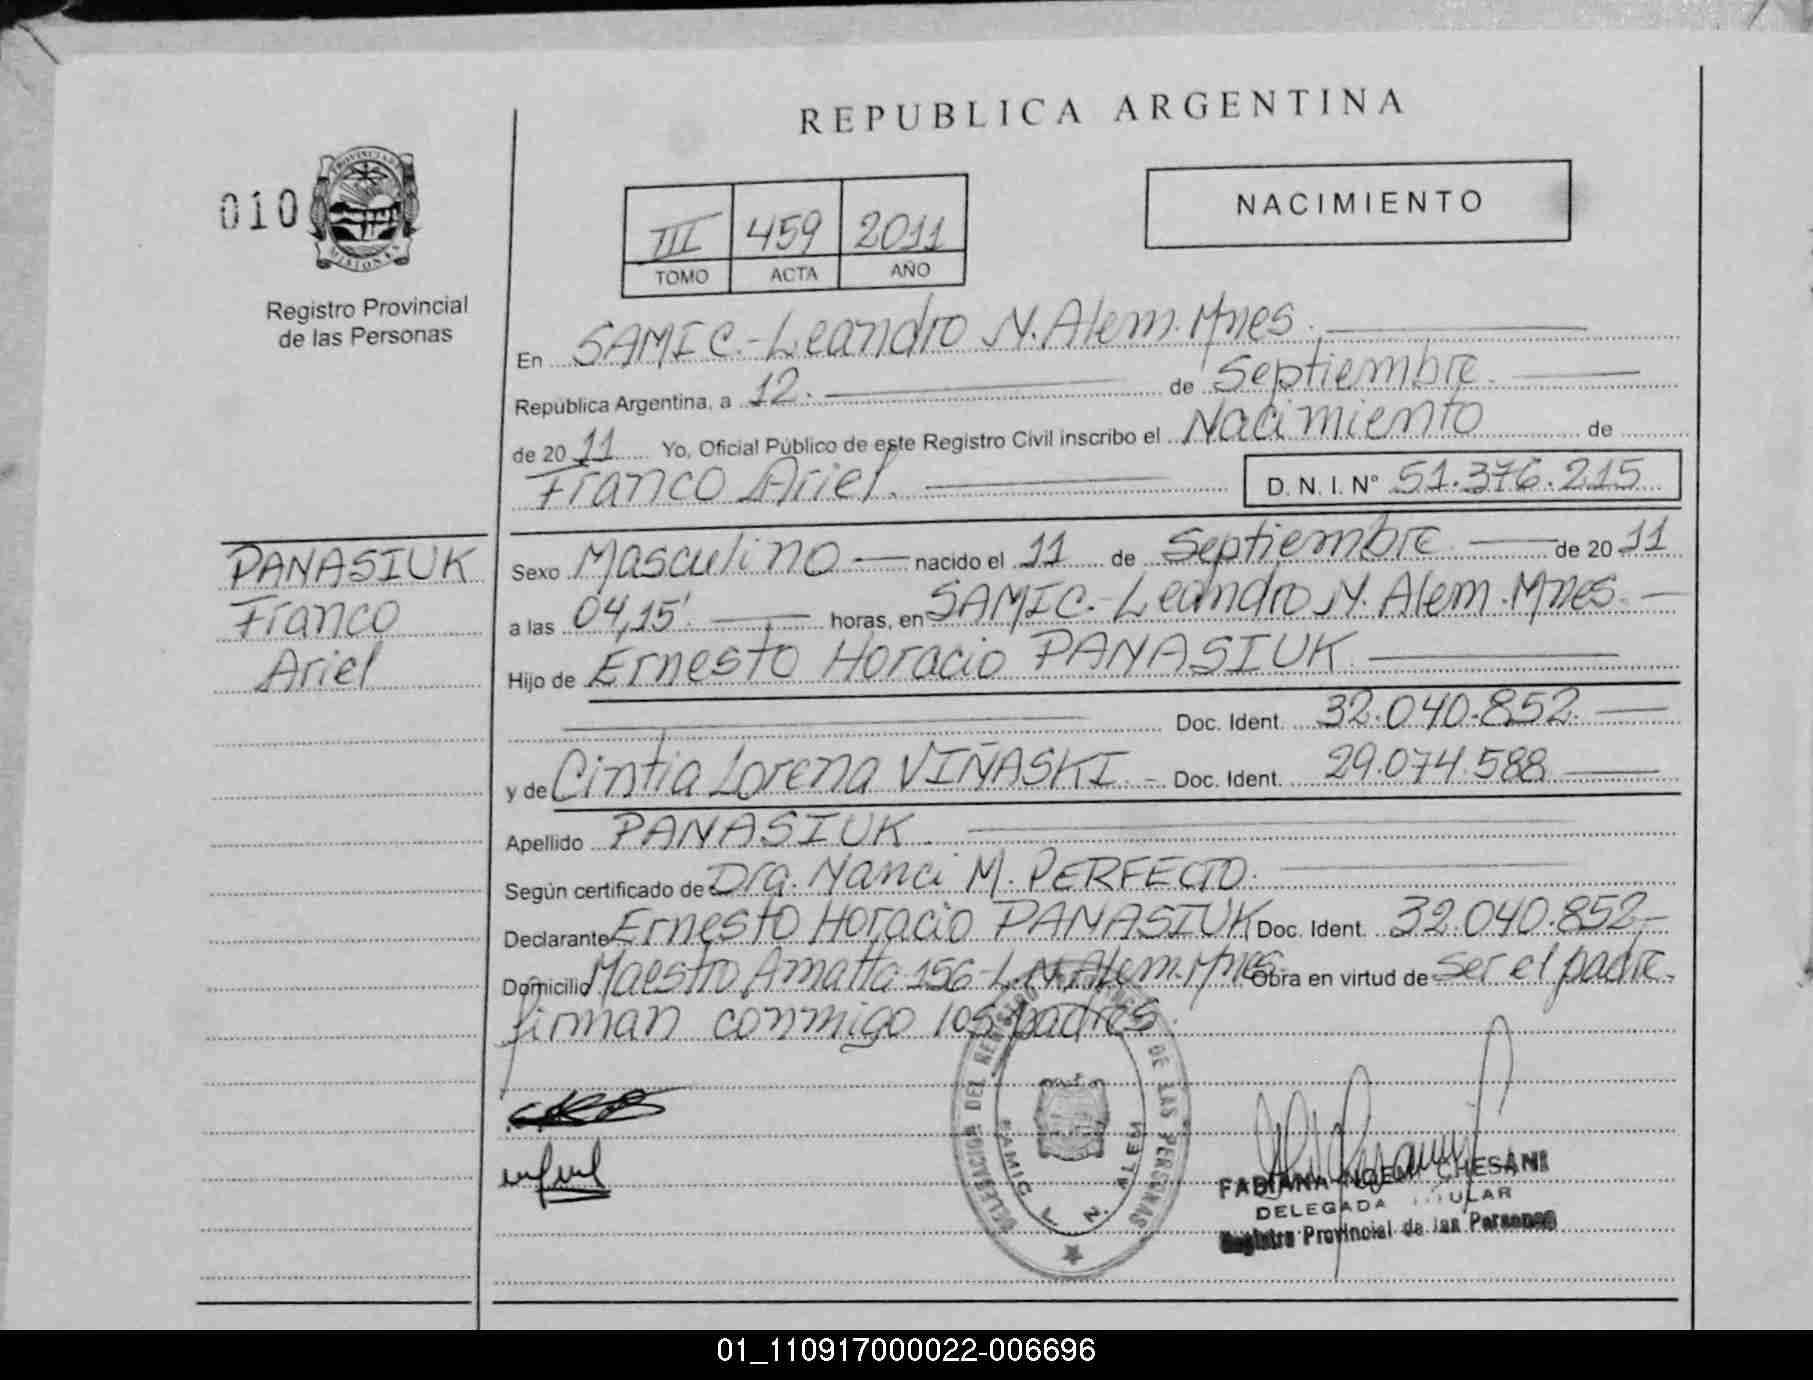 REPUBLICA ARGENTINA
010
PROVINCIA DE
MISIONES
Registro Provincial
de las Personas
III 459 2011
TOMO ACTA AÑO
NACIMIENTO
En SAMIC.-Leandro N. Alem. Mnes.
República Argentina, a 12. de Septiembre.
de 2011 Yo, Oficial Público de este Registro Civil inscribo el Nacimiento de
Franco Ariel. D. N. I. N° 51.376.215
PANASIUK
Franco
Ariel
Sexo Masculino nacido el 11 de Septiembre de 2011
a las 04,15' horas, en SAMIC.-Leandro N. Alem. Mnes.
Hijo de Ernesto Horacio PANASIUK.
Doc. Ident. 32.040.852.
y de Cintia Lorena VIÑASKI.- Doc. Ident. 29.074.588
Apellido PANASIUK.
Según certificado de Dra. Nanci M. PERFECTO.
Declarante Ernesto Horacio PANASIUK Doc. Ident. 32.040.852.-
Domicilio Maestro Amatta 156-L.N. Alem. Mnes. Obra en virtud de ser el padre.
firman conmigo los padres.
DELEGACION DEL REGISTRO DE LAS PERSONAS
SAMIC L. N. ALEM
FABIANA NOEMI CHESANI
DELEGADA TITULAR
Registro Provincial de las Personas
01_110917000022-006696